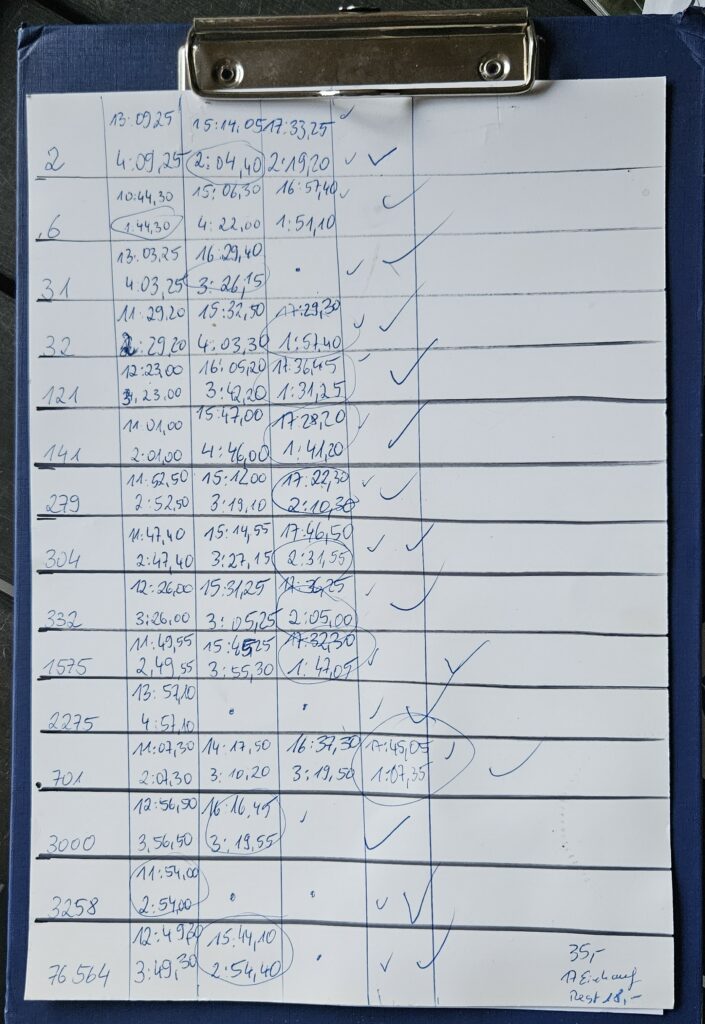 13:09,25 15:14,05 17:33,25
2 4:09,25 2:04,40 2:19,20
10:44,30 15:06,30 16:57,40
6 1:44,30 4:22,00 1:51,10
13:03,25 16:29,40
31 4:03,25 3:26,15
11:29,20 15:32,50 17:29,30
32 2:29,20 4:03,30 1:57,40
12:23,00 16:05,20 17:36,45
121 3:23,00 3:42,20 1:31,25
11:01,00 15:47,00 17:28,20
141 2:01,00 4:46,00 1:41,20
11:52,50 15:12,00 17:22,30
279 2:52,50 3:19,10 2:10,30
11:47,40 15:14,55 17:46,50
304 2:47,40 3:27,15 2:31,55
12:26,00 15:31,25 17:36,25
332 3:26,00 3:05,25 2:05,00
11:49,55 15:45,25 17:32,30
1575 2,49,55 3:55,30 1:47,05
13:57,10
2275 4:57,10
11:07,30 14:17,50 16:37,30 17:45,05
701 2:07,30 3:10,20 3:19,50 1:07,35
12:56,50 16:16,45
3000 3,56,50 3:19,55
11:54,00
3258 2:54,00
12:49,30 15:44,10
76 564 3:49,30 2:54,40
35,-
17 Einkauf
Rest 18,-